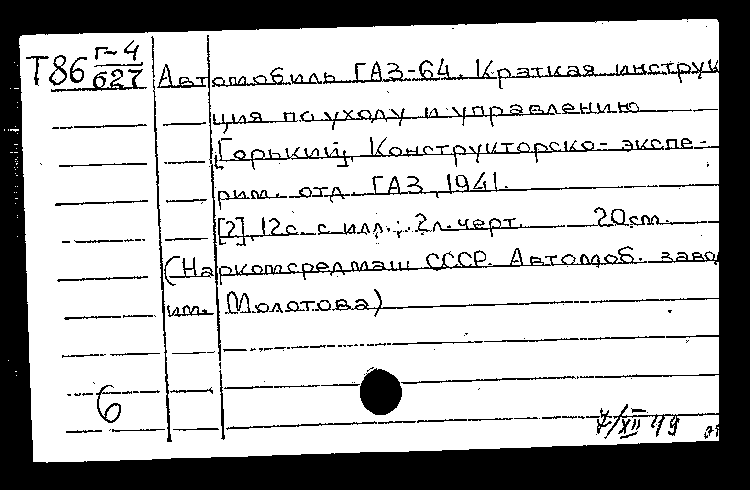 Т86 Г-4
627
Автомобиль ГАЗ-64. Краткая инструк
ция по уходу и управлению
[Горький], Конструкторско- экспе-
рим. отд. ГАЗ, 1941.
[2], 12с. с илл.; 2л. черт. 20см.
(Наркомсредмаш СССР. Автомоб. завод
им. Молотова)
6
7/XII 49